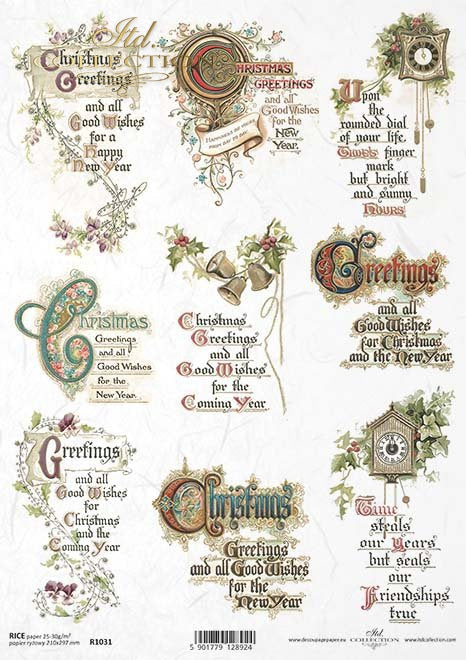 itd.
COLLECTION
Christmas
Greetings
and all
Good Wishes
for a
Happy
New Year
CHRISTMAS
GREETINGS
and all
Good Wishes
for the
New
Year.
HAPPINESS BE YOURS
FROM DAY TO DAY.
Upon
the
rounded dial
of your life,
Time's finger
mark
but bright
and sunny
hours.
Christmas
Greetings
and all
Good Wishes
for the
New Year.
Christmas
Greetings
and all
Good Wishes
for the
Coming Year
Greetings
and all
Good Wishes
for Christmas
and the New Year
Greetings
and all
Good Wishes
for
Christmas
and the
Coming Year
Christmas
Greetings
and all Good Wishes
for the
New Year
Time
steals
our Years
but seals
our
Friendships
true
RICE paper 25-30g/m²
papier ryżowy 210x297 mm R1031
5 901779 128924
www.decoupagepaper.eu
itd.
COLLECTION
www.itdcollection.com